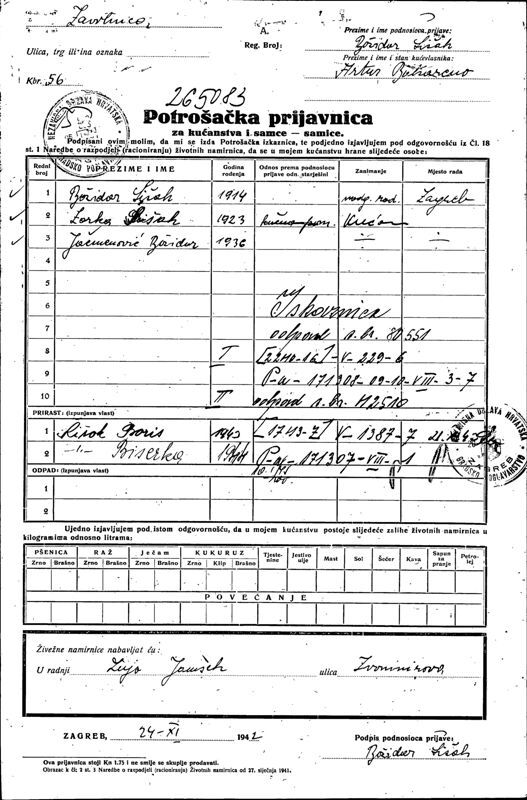 Zavrtnica
A.
Reg. Broj:
Prezime i ime podnosioca prijave:
Božidar Lišak
Ulica, trg ili ina oznaka
Prezime i ime i stan kućevlasnika:
Artur
Kbr. 56
265083
NEZAVISNA DRŽAVA HRVATSKA
Potrošačka prijavnica
za kućanstva i samce — samice.
Podpisani ovim molim, da mi se izda Potrošačka izkaznice, te podjedno izjavljujem pod odgovornošću iz Čl. 18
st. 1 Naredbe o razpodjeli (racioniranju) životnih namirnica, da se u mojem kućanstvu hrane slijedeće osobe:
Redni broj PREZIME I IME Godina rođenja Odnos prema podnosiocu prijave odn. starješini Zanimanje Mjesto rada
1 Božidar Lišak 1914 Zagreb
2 Zorka Lišak 1923
3 Božidar 1936
4
5
6 Iskaznica
7 otpad a. br. 80551
8 I [2240-1a] - V - 229-6
9 P-a-171308-09-10-VIII-3-7
10 II otpad a. br. 112510
PRIRAST: (izpunjava vlast)
1 Lišak Boris 1943 [-1743-Z] V-1387-7
2 Biserka 1944 171307-VIII-1
ODPAD: (izpunjava vlast)
1
2
NEZAVISNA DRŽAVA HRVATSKA
ZAGREB
Ujedno izjavljujem pod istom odgovornošću, da u mojem kućanstvu postoje slijedeće zalihe životnih namirnica u
kilogramima odnosno litrama:
PŠENICA RAŽ Ječam KUKURUZ Tjestenine Jestivo ulje Mast Sol Šećer Kava Sapun za pranje Petrolej
Zrno Brašno Zrno Brašno Zrno Brašno Zrno Klip Brašno
POVEĆANJE
Živežne namirnice nabavljat ću:
U radnji ulica Zvonimirova
ZAGREB, 24-XI 1942
Podpis podnosioca prijave:
Božidar Lišak
Ova prijavnica stoji Kn 1.75 i ne smije se skuplje prodavati.
Obrazac k čl. 2 st. 3 Naredbe o razpodjeli (racioniranju) životnih namirnica od 27. siječnja 1941.